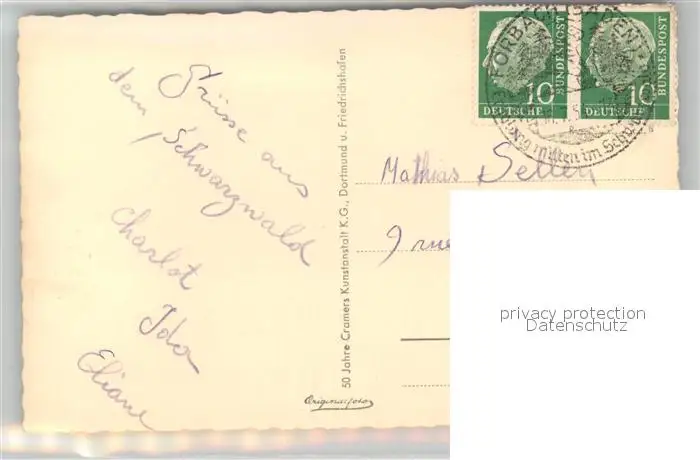 Grüsse aus
dem Schwarzwald
Charlot
Ida
Eliane
50 Jahre Cramers Kunstanstalt K.G., Dortmund u. Friedrichshafen
Originalfoto
FORBACH (BADEN)
mitten im
10
DEUTSCHE
BUNDESPOST
10
DEUTSCHE
BUNDESPOST
Mathias
9 rue
privacy protection
Datenschutz